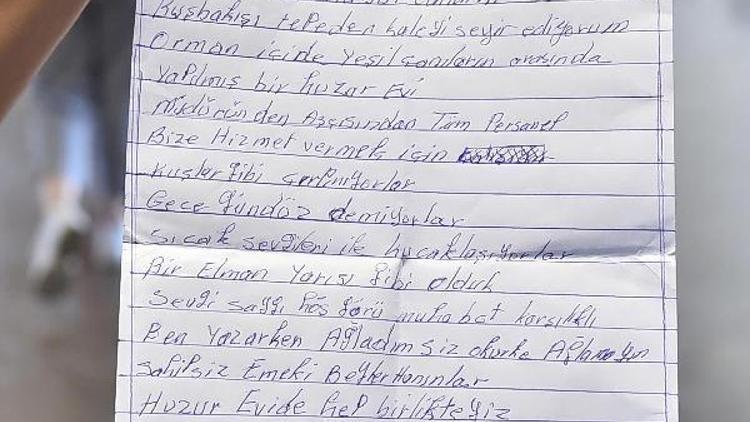 Kuşbakışı tepeden kaleyi seyir ediyorum
Orman içinde yeşil çamların arasında
Yapılmış bir huzur Evi
Müdüründen Aşçısından Tüm Personel
Bize Hizmet vermek için
Kuşlar gibi çırpınıyorlar
Gece Gündöz demiyorlar
Sıcak sevgileri ile kucaklaşıyorlar
Bir Elman Yarısı gibi olduk
Sevgi saygı höş görü muhabat karşılıklı
Ben Yazarken Ağladım siz okurke Ağlamayın
Sahipsiz Emeki Beyler Hanımlar
Huzur Evide hep birlikteyiz